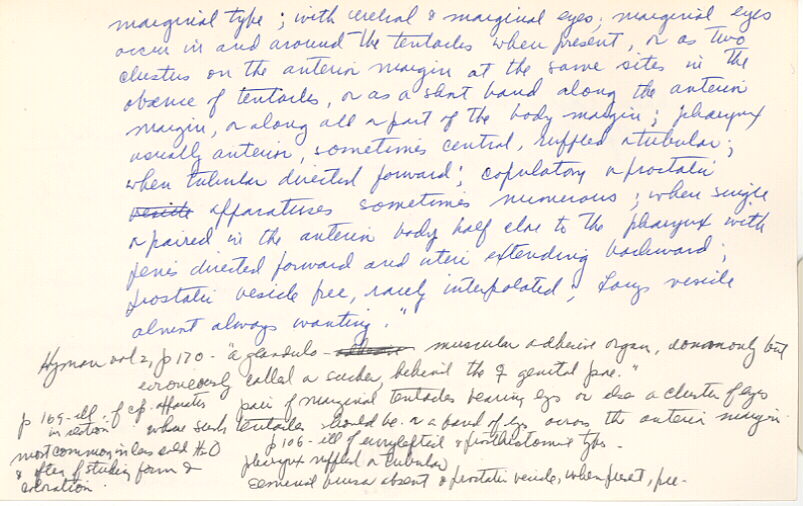 marginal type ; with cerebral & marginal eyes ; marginal eyes
occur in and around the tentacles when present, or as two
clusters on the anterior margin at the same sites in the
absence of tentacles, or as a short band along the anterior
margin, or along all or part of the body margin ; pharynx
usually anterior, sometimes central, ruffled or tubular ;
when tubular directed forward ; copulatory or prostatic
vesicle apparatuses sometimes numerous ; when single
or paired in the anterior body half close to the pharynx with
penis directed forward and uteri extending backward ;
prostatic vesicle free, rarely interpolated ; Lang's vesicle
almost always wanting . "
Hyman vol 2, p 170 - "a glandulo - muscular adhesive organ, commonly but
erroneously called a sucker, behind the ♀ genital pore."
pair of marginal tentacles bearing eyes or else a cluster of eyes
where such tentacles should be or a band of eyes across the anterior margin.
p 169 - ill. of cop. apparatus
in section
p 106 - ill of euryleptid & prosthiostomid types -
most common in less cold H2O
& often of striking form &
coloration.
pharynx ruffled or tubular
seminal bursa absent & prostatic vesicle, when present, free -